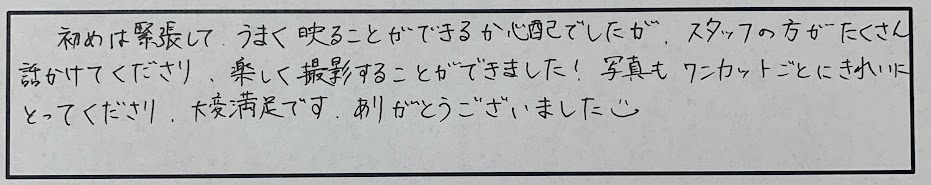 初めは緊張して、うまく映ることができるか心配でしたが、スタッフの方がたくさん
話かけてくださり、楽しく撮影することができました！写真もワンカットごとにきれいに
とってくださり、大変満足です。ありがとうございました